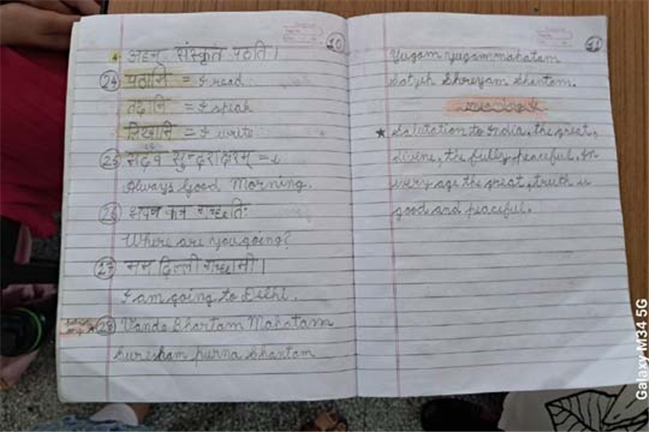 20
अहम् संस्कृत पठति।
24 पठामि = I read
वदामि = I speak
लिखामि = I write
25 सदैव सुन्दराक्षरम् =
Always Good Morning.
26
Where are you going?
27 मम दिल्ली गच्छामी।
I am going to Delhi.
28 Vande Bhartam Mahatam
Suresham purna Shantam
21
Yugam yugam mahatam
Satyih Shreyam Shantam.
★ Salutation to India, the great,
divine, the fully peaceful. In
every age the great, truth is
good and peaceful.
Galaxy M34 5G